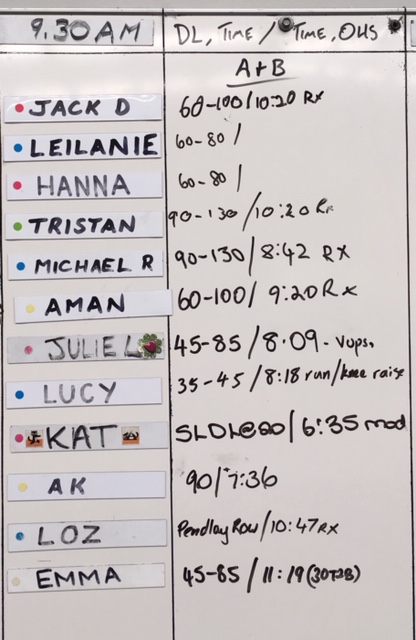 9.30AM DL, TIME / TIME, OHS
A+B
JACK D 60-100/10:20 Rx
LEILANIE 60-80/
HANNA 60-80/
TRISTAN 90-130/10:20 Rx
MICHAEL R 90-130/8:42 RX
AMAN 60-100/9:20 Rx
JULIE L 45-85/8:09 - Vups.
LUCY 35-45/8:18 run/knee raise
KAT SLDL@80/6:35 mod
AK 90/7:36
LOZ Pendlay Row/10:47 RX
EMMA 45-85/11:19 (30T2B)